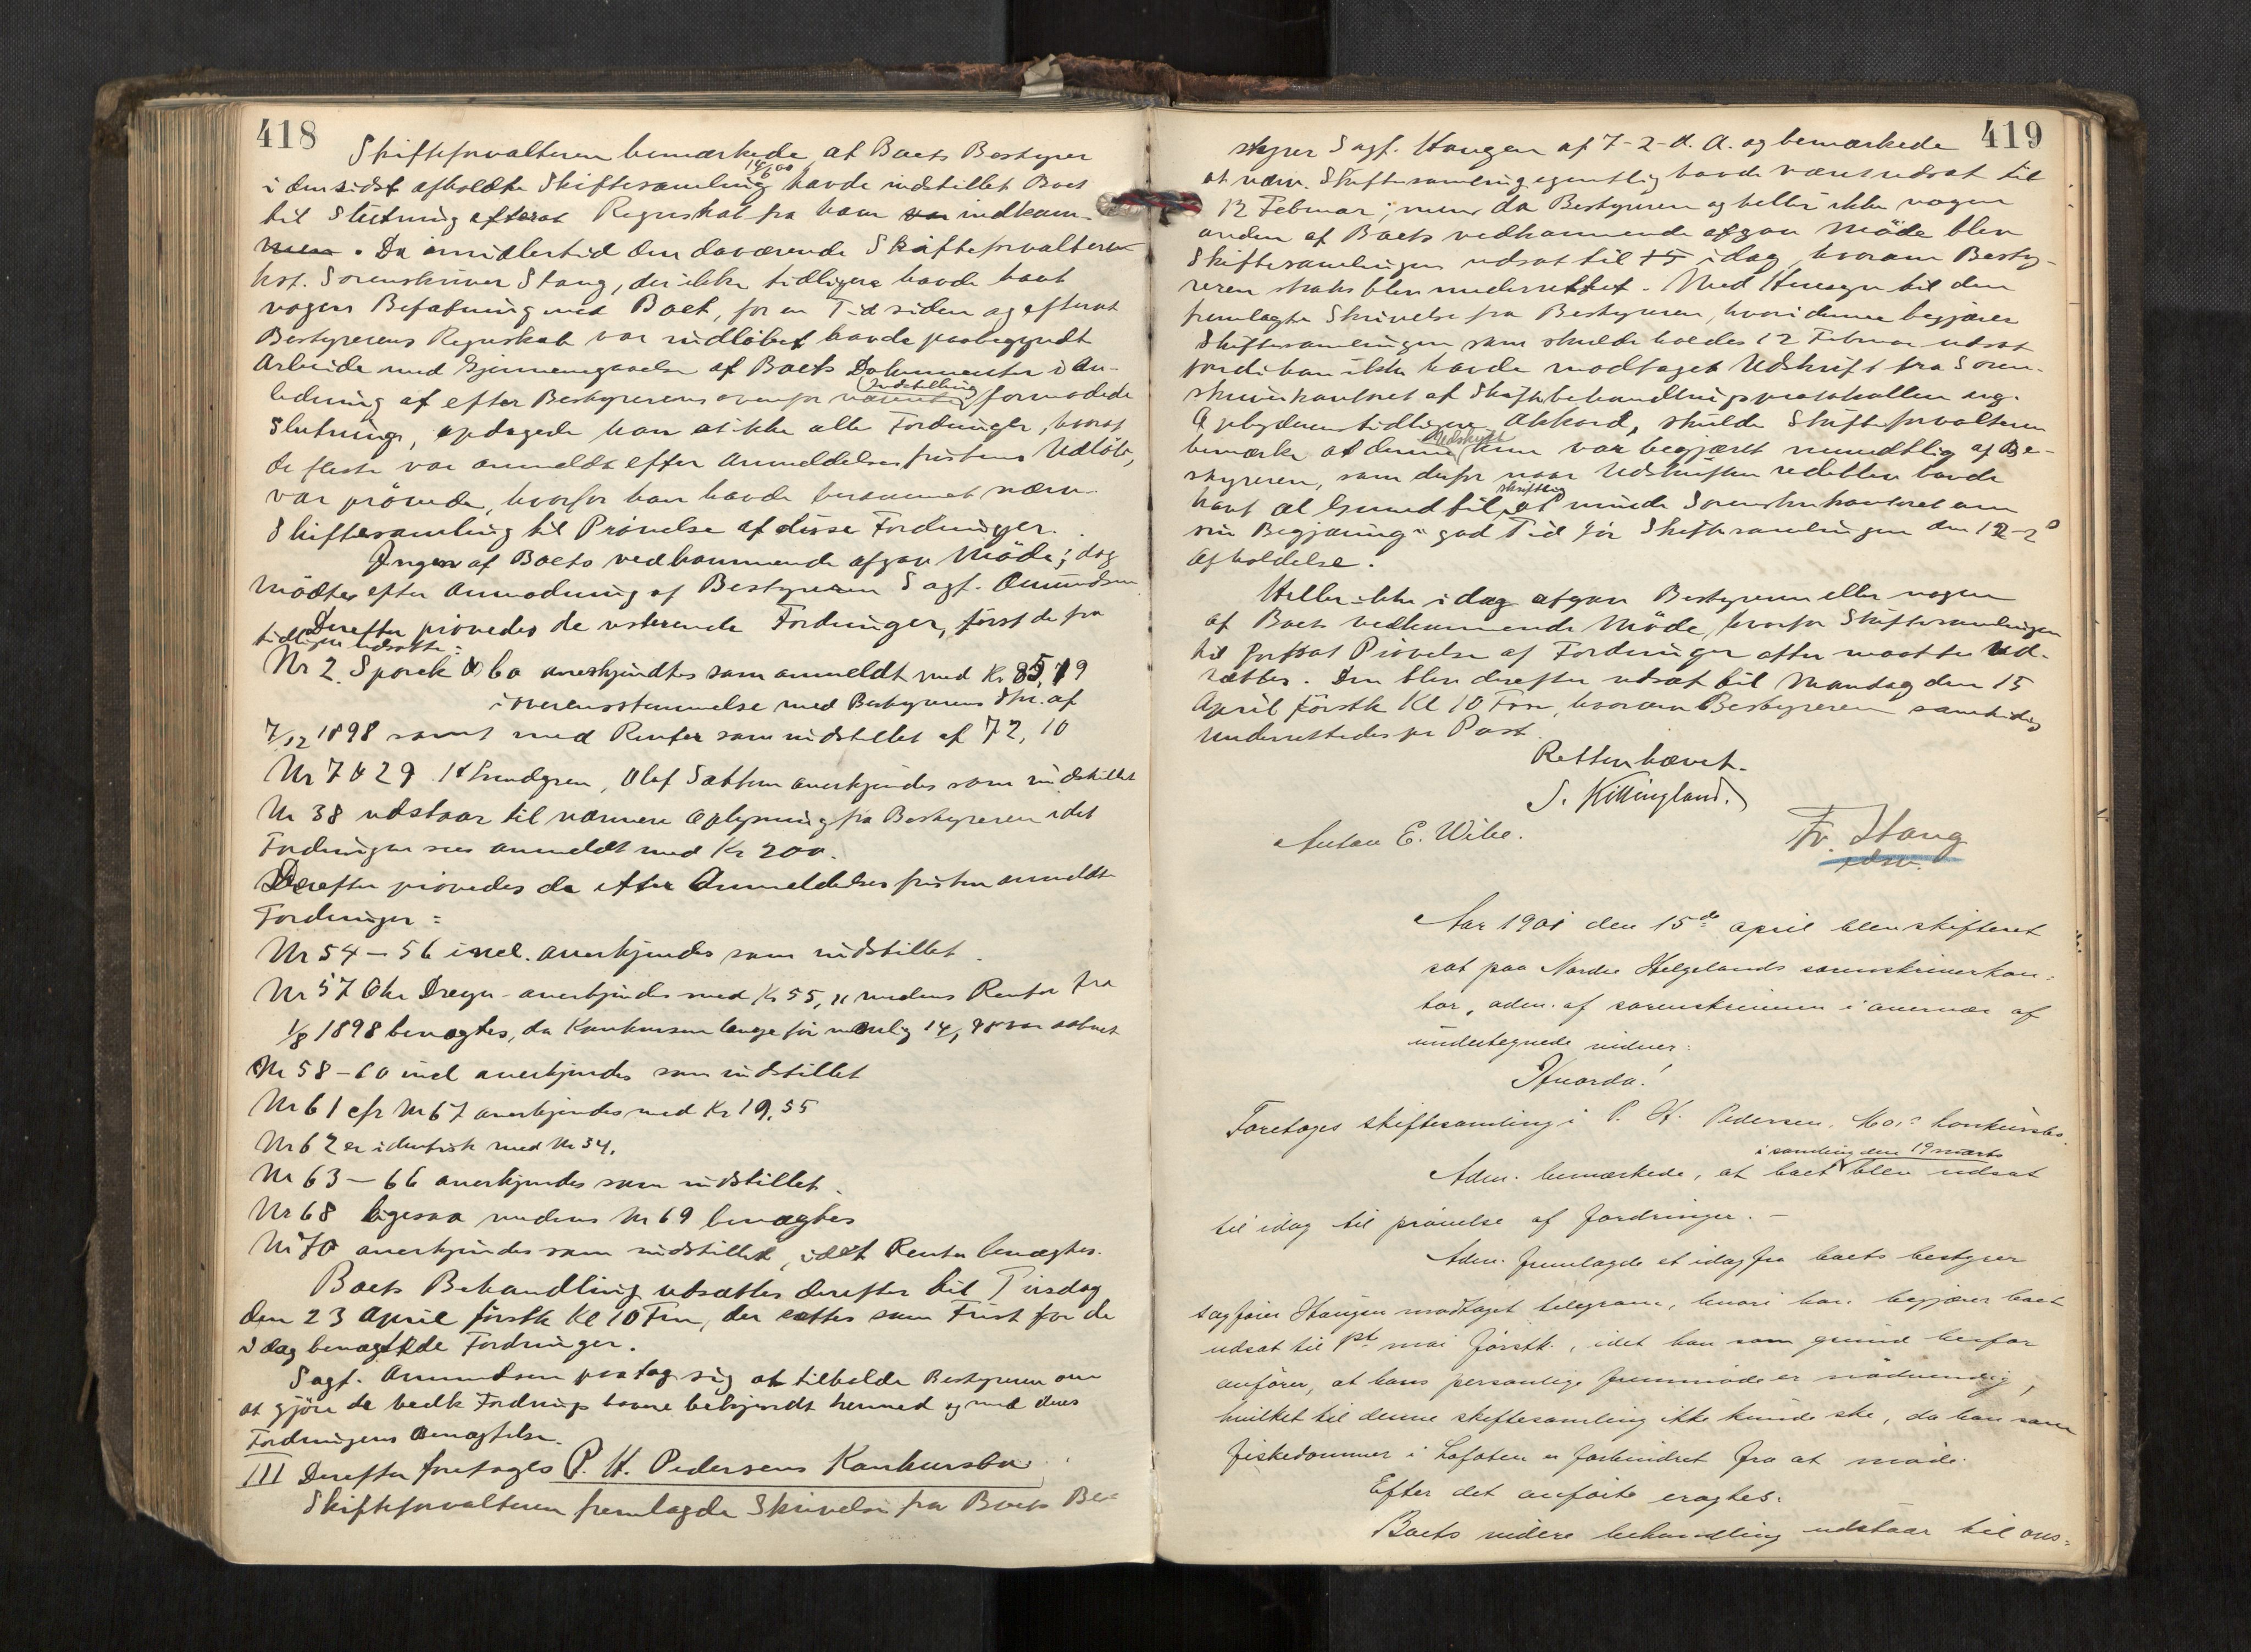 418
Skifteforvalteren bemærkede at Boets Bestyrer
i den sidst afholdte Skiftesamling 14/6 00 havde indstillet Boet
til Slutning efterat Regnskab fra ham var indkom-
men. Da imidlertid den daværende Skifteforvalter
kst. Sorenskriver Stang, der ikke tidligere havde havt
nogen Befatning med Boet, for en Tid siden og efterat
Bestyrerens Regnskab var indløbet havde paabegyndt
Arbeide med Gjennemgaaelse af Boets Dokumenter i An-
ledning af efter Bestyrerens ovenfor nævnte Indstilling formodede
Slutning, opdagede han at ikke alle Fordringer, hvoraf
de fleste var anmeldt efter Anmeldelsesfristens Udløb,
var prøvede, hvorfor han havde berammet nærv.
Skiftesamling til Prøvelse af disse Fordringer.
Ingen af Boets vedkommende afgav Møde; dog
mødte efter Anmodning af Bestyreren Sagf. Amundsen
Derefter prøvedes de resterende Fordringer, først de fra
tidligere udsatte:
Nr 2. Sporck & Co anerkjendtes som anmeldt med Kr 85,19
i overensstemmelse med Bestyrerens Skr. af
7/12 1898 samt med Renter som indstillet af 72,10
Nr 7 & 29 Lundgren, Olaf Sættem anerkjendes som indstillet
Nr 38 udstaar til nærmere Oplysning fra Bestyreren idet
Fordringen sees anmeldt med Kr 200.
Derefter prøvedes de efter Anmeldelsesfristen anmeldte
Fordringer:
Nr 54 – 56 incl. anerkjendes som indstillet.
Nr 57 Chr Dreyer anerkjendes med Kr 55, " medens Renter fra
1/8 1898 benægtes, da Konkursen længe før var aabnet
Nr 58 – 60 incl anerkjendes som indstillet
Nr 61 cfr Nr 67 anerkjendes med Kr 19,55
Nr 62 er identisk med Nr 34.
Nr 63 – 66 anerkjendes som indstillet.
Nr 68 ligesaa medens Nr 69 benægtes
Nr 70 anerkjendes som indstillet, idet Renter benægtes.
Boets Behandling udsættes derefter til Tirsdag
den 23 April førstk Kl 10 Fm, der sattes som Frist for de
idag benægtede Fordringer.
Sagf. Amundsen paatog sig at tilholde Bestyreren om
at gjøre de vedk Fordrings havere bekjendt hermed og med deres
Fordringers Benægtelse.
III Derefter foretoges P. H. Pedersens Konkursbo
Skifteforvalteren fremlagde Skrivelse fra Boets Be-
419
styrer Sagf. Haugen af 7-2-d. A. og bemærkede
at nærv. Skiftesamling egentlig havde været udsat til
12 Februar, men da Bestyreren og heller ikke nogen
anden af Boets vedkommende afgav Møde blev
Skiftesamlingen udsat til idag, hvorom Besty-
reren straks blev underrettet. Med Hensyn til den
fremlagte Skrivelse fra Bestyreren, hvori denne begjærer
Skiftesamlingen som skulde holdes 12 Februar udsat
fordi han ikke havde modtaget Udskrift fra Soren-
skriverkontoret af Skiftebehandlingsprotokollen ang.
tidligere Akkord, skulde Skifteforvalteren
bemærke at denne Udskrift kun var begjæret mundtlig af Be-
styreren, som derfor naar Udskriften udeblev havde
havt al Grund til skriftlig at minde Sorenskriverkontoret om
sin Begjæring i god Tid før Skiftesamlingen den 12-2
Afholdelse.
Heller ikke idag afgav Bestyreren eller nogen
af Boets vedkommende Møde, hvorfor Skiftesamlingen
til fortsat Prøvelse af Fordringer atter maatte ud-
sættes. Den blev derefter udsat til Mandag den 15
April førstk Kl 10 Fm, hvorom Bestyreren samtidig
underrettedes pr Post.
Retten hævet.
S. Killingland.
Anton E. Wibe.
Fr. Stang
Aar 1901 den 15de april blev skifteret
sat paa Nordre Helgelands sorenskriverkon-
tor, adm. af sorenskriveren i overvær af
undertegnede vidner:
Hvorda!
Foretoges skiftesamling i P. H. Pedersen & Co.s konkursbo.
Adm. bemærkede, at boet i samling den 19 marts blev udsat
til idag til prøvelse af fordringer. –
Adm. fremlagde et idag fra boets bestyrer
sagfører Haugen modtaget telegram, hvori han begjærer boet
udsat til 1ste mai førstk., idet han som grund herfor
anfører, at hans personlige fremmøde er nødvendig,
hvilket til denne skiftesamling ikke kunde ske, da han som
fiskedommer i Lofoten er forhindret fra at møde.
Efter det anførte eragtes:
Boets videre behandling udstaar til ons-